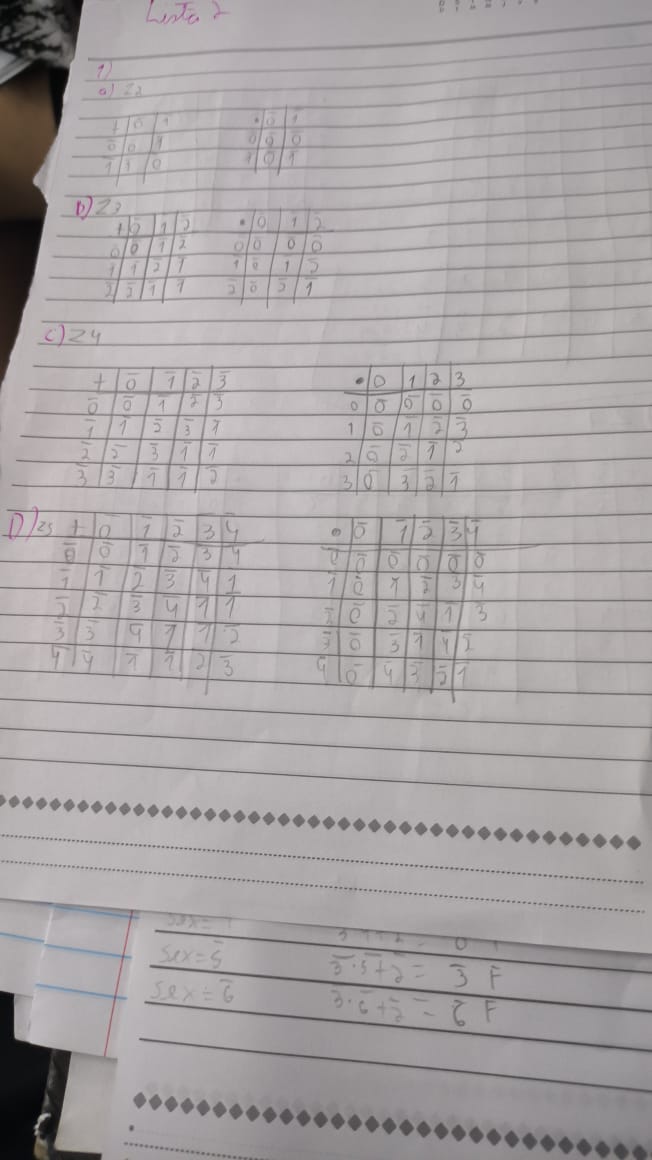 Lista 2
1)
a) Z2
+ 0̄ 1
0̄ 0 1
1̄ 1 0
• 0̄ 1̄
0 0̄ 0̄
1 0̄ 1̄
b) Z3
+ 0̄ 1 2̄
0 0̄ 1 2̄
1 1 2 1
2 2̄ 1 1
• 0 1 2̄
0 0̄ 0 0̄
1 0̄ 1 2̄
2 0̄ 2̄ 1̄
C) Z4
+ 0̄ 1̄ 2̄ 3̄
0̄ 0̄ 1̄ 2̄ 3̄
1̄ 1̄ 2̄ 3̄ 1̄
2̄ 2̄ 3̄ 1̄ 1̄
3̄ 3̄ 1̄ 1̄ 2̄
• 0 1 2 3
0 0̄ 0̄ 0̄ 0̄
1 0̄ 1̄ 2̄ 3̄
2 0̄ 2̄ 1̄ 2
3 0̄ 3̄ 2̄ 1̄
D) Z5
+ 0̄ 1̄ 2̄ 3̄ 4̄
0̄ 0̄ 1̄ 2̄ 3̄ 4
1̄ 1̄ 2̄ 3̄ 4̄ 1
2̄ 2̄ 3̄ 4̄ 1 1
3̄ 3̄ 4̄ 1 1 2̄
4̄ 4̄ 1̄ 1̄ 2 3̄
• 0̄ 1̄ 2̄ 3̄ 4̄
0̄ 0̄ 0̄ 0̄ 0̄ 0̄
1̄ 0̄ 1 2̄ 3 4̄
2̄ 0̄ 2̄ 4̄ 1̄ 3
3̄ 0̄ 3̄ 1̄ 4̄ 2̄
4̄ 0̄ 4̄ 3̄ 2̄ 1̄
Se x = 5̄ 3̄·5̄+2̄ = 3̄ F
Se x = 6̄ 3·6̄+2̄ = 6̄ F